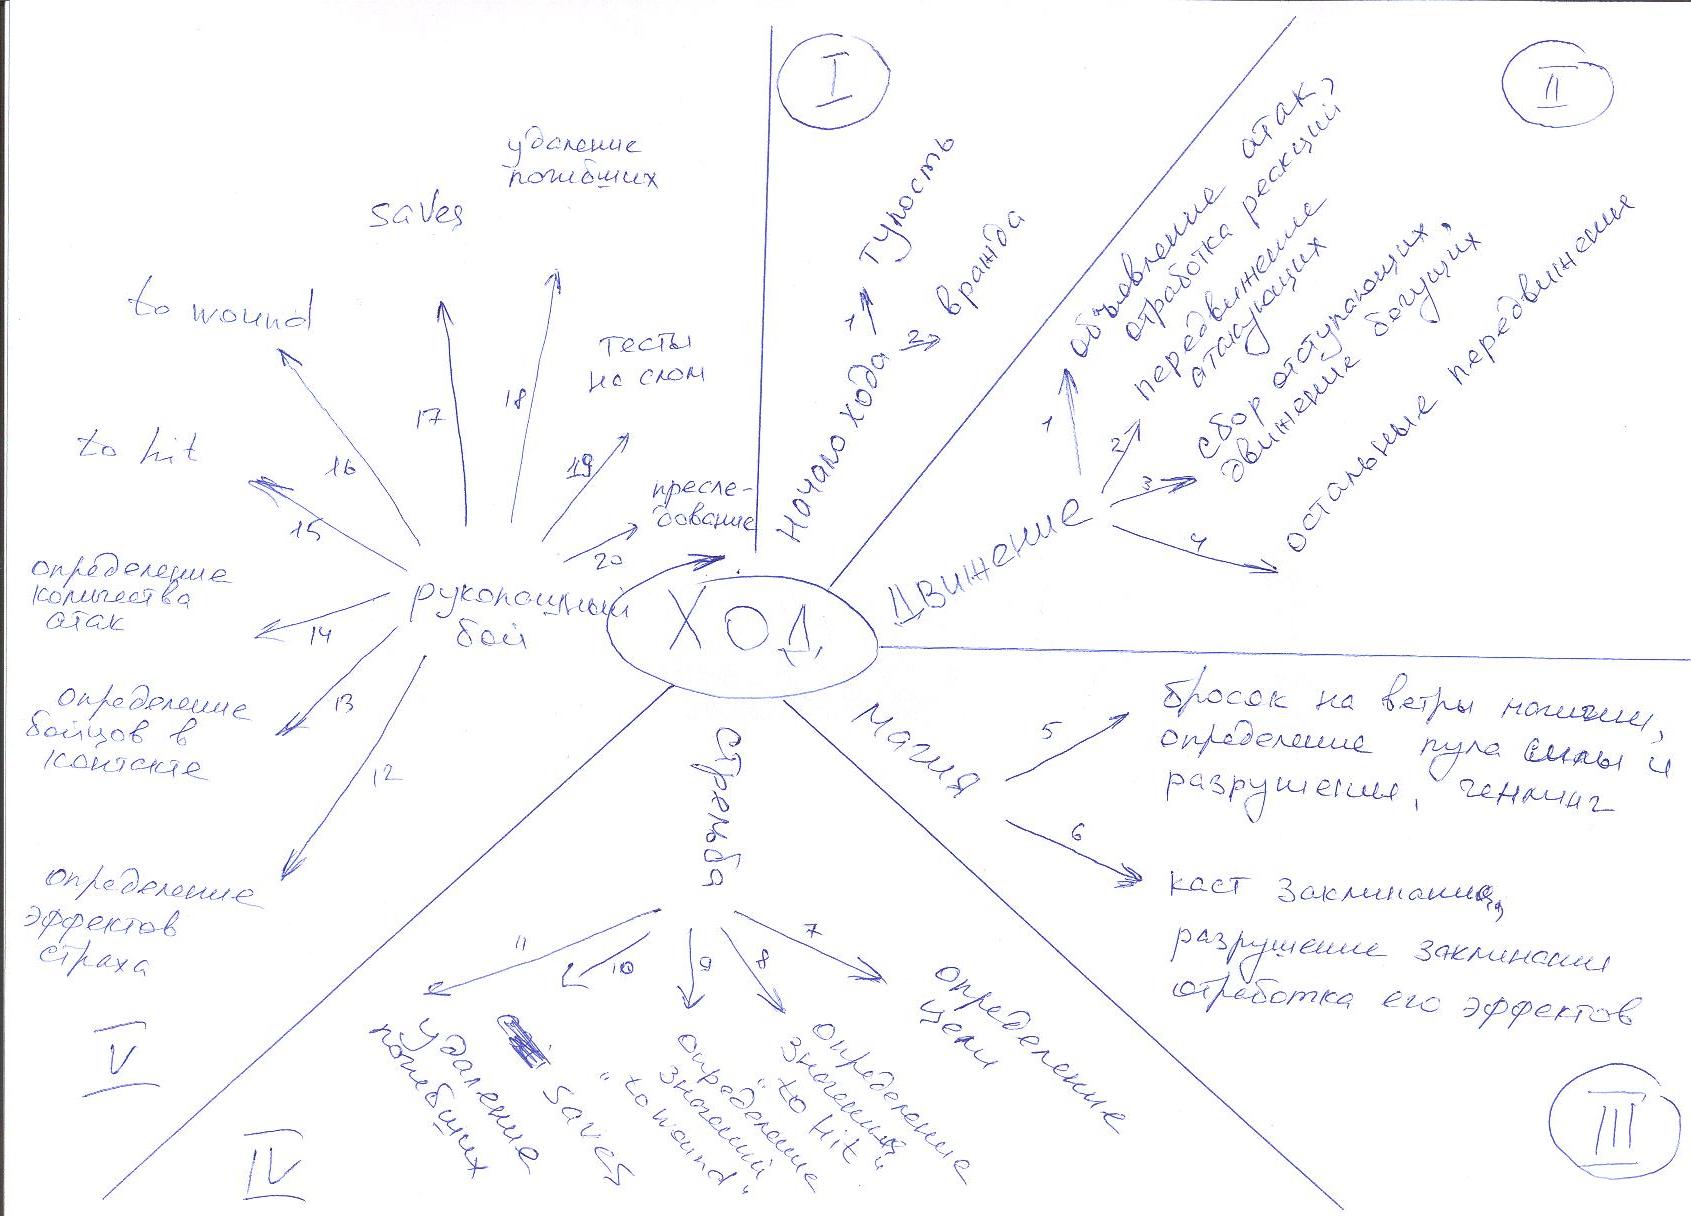 ХОД
I
начало хода
1
тупость
2
вражда
II
Движение
1
объявление атак,
отработка реакций
2
передвижение
атакующих
3
сбор отступающих,
движение бегущих
4
остальные передвижения
III
Магия
5
бросок на ветры магии,
определение пула силы и
разрушения, ченлинг
6
каст заклинания,
разрушение заклинания
отработка его эффектов
IV
стрельба
7
определение
цели
8
определение
значения
"to hit"
9
определение
значений
"to wound"
10
saves
11
удаление
погибших
V
рукопашный
бой
12
определение
эффектов
страха
13
определение
бойцов в
контакте
14
определение
количества
атак
15
to hit
16
to wound
17
saves
18
удаление
погибших
19
тесты
на слом
20
пресле-
дование